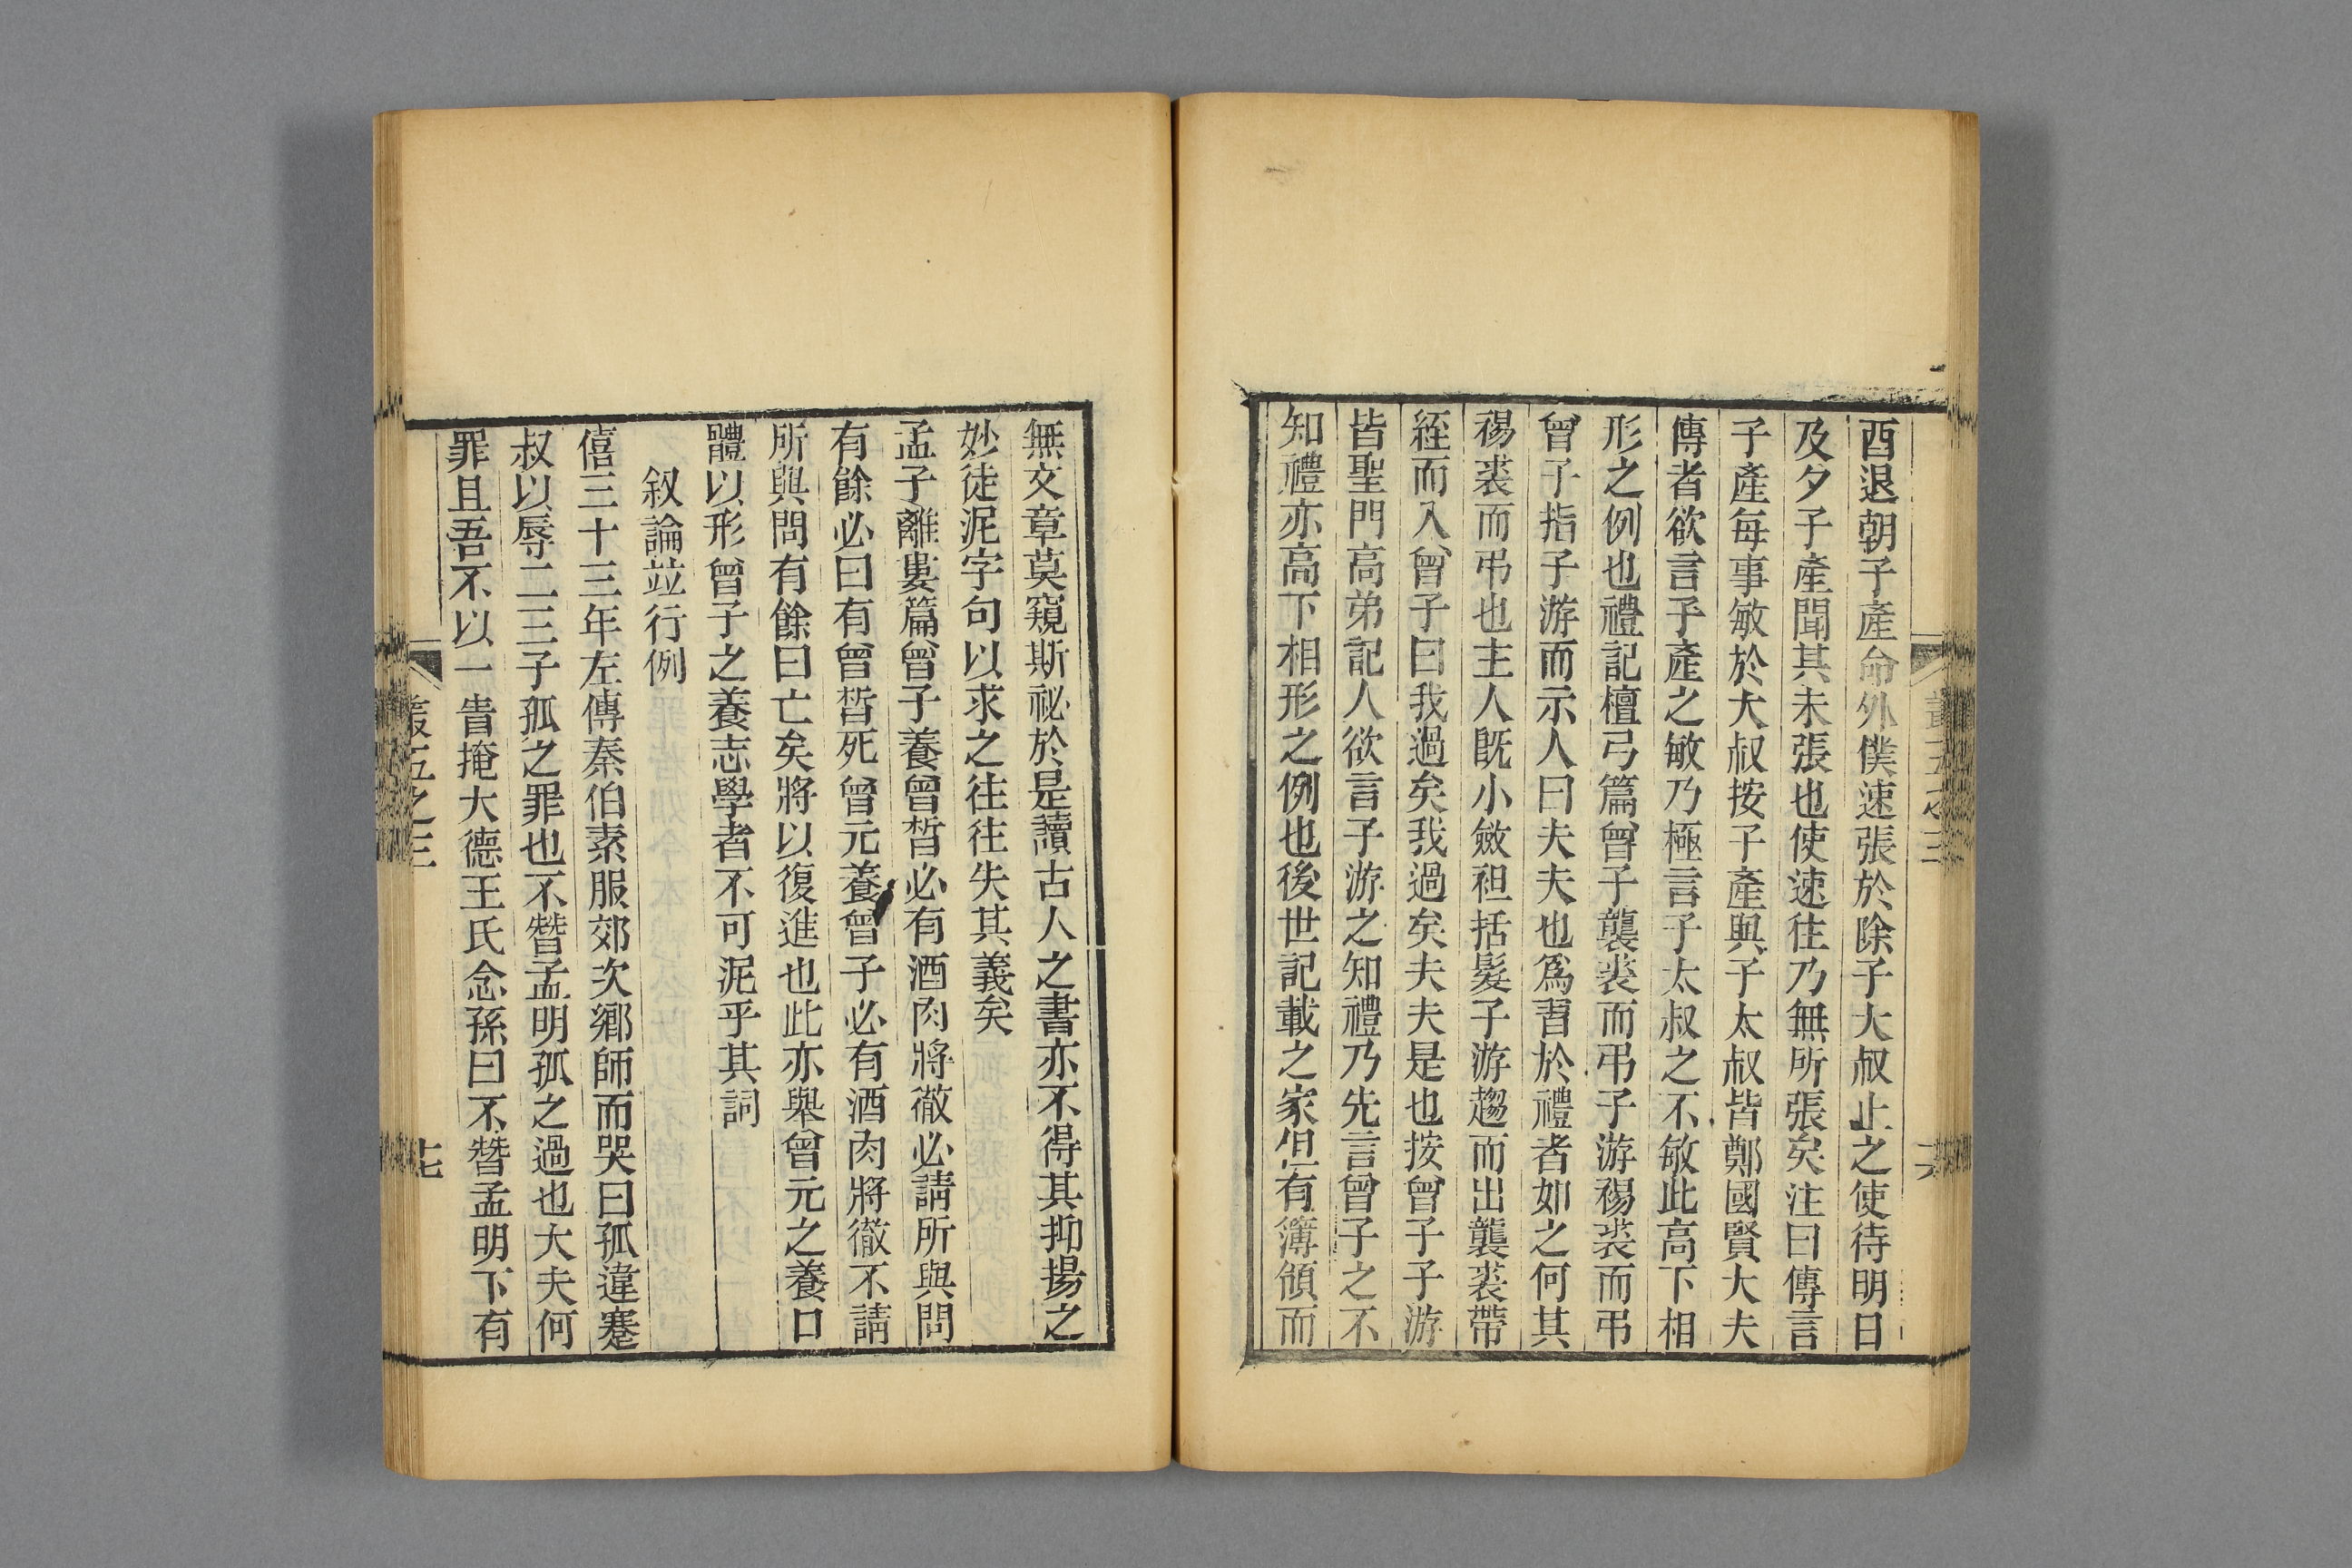 酉退朝子產命外僕速張於除子大叔止之使待明日
及夕子產聞其未張也使速往乃無所張矣注曰傳言
子產每事敏於大叔按子產與子太叔皆鄭國賢大夫
傳者欲言子產之敏乃極言子太叔之不敏此高下相
形之例也禮記檀弓篇曾子襲裘而弔子游裼裘而弔
曾子指子游而示人曰夫夫也爲習於禮者如之何其
裼裘而弔也主人既小斂袒括髮子游趨而出襲裘帶
絰而入曾子曰我過矣我過矣夫夫是也按曾子子游
皆聖門高弟記人欲言子游之知禮乃先言曾子之不
知禮亦高下相形之例也後世記載之家但有簿領而
無文章莫窺斯祕於是讀古人之書亦不得其抑揚之
妙徒泥字句以求之往往失其義矣
孟子離婁篇曾子養曾皙必有酒肉將徹必請所與問
有餘必曰有曾皙死曾元養曾子必有酒肉將徹不請
所與問有餘曰亡矣將以復進也此亦舉曾元之養口
體以形曾子之養志學者不可泥乎其詞
叙論竝行例
僖三十三年左傳秦伯素服郊次鄉師而哭曰孤違蹇
叔以辱二三子孤之罪也不替孟明孤之過也大夫何
罪且吾不以一眚掩大德王氏念孫曰不替孟明下有
叢五之三
十七